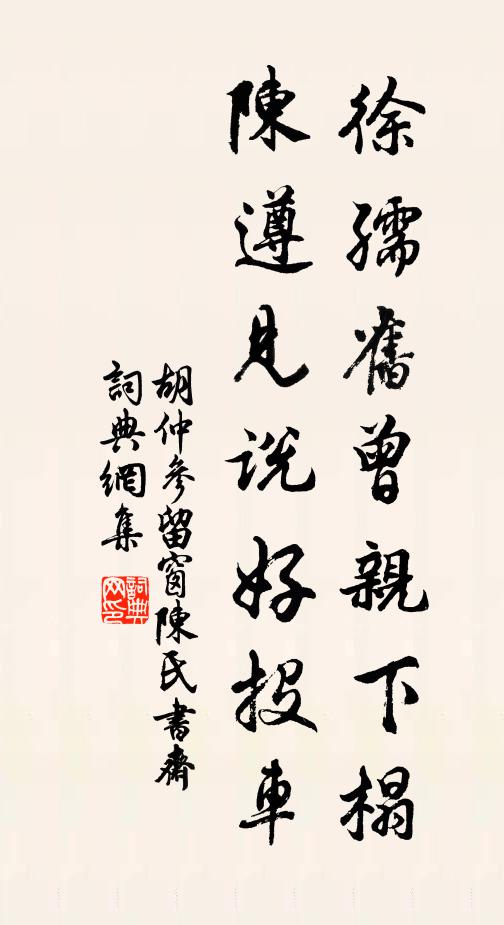 徐孺舊曾親下榻
陳遵見説好投車
胡仲參留窗陳氏書齋
詞典網集
詞典網印